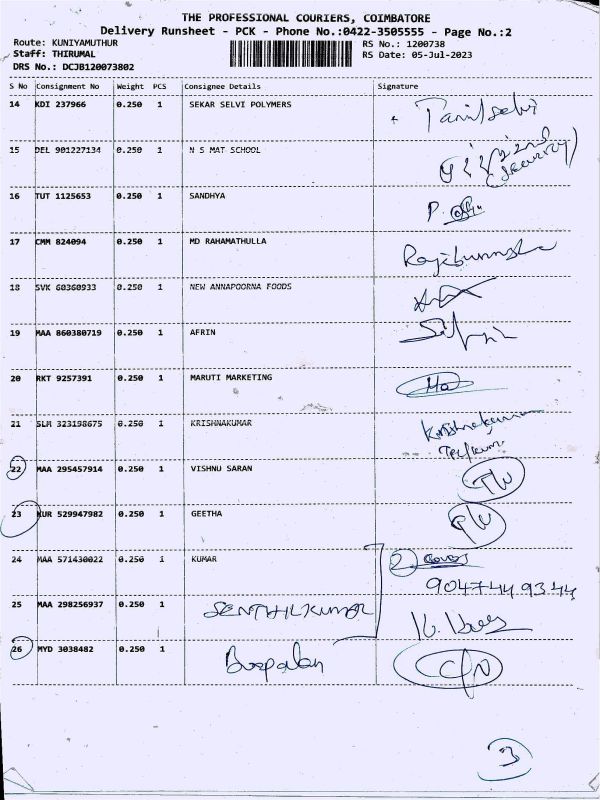 THE PROFESSIONAL COURIERS, COIMBATORE
Delivery Runsheet - PCK - Phone No.:0422-3505555 - Page No.:2
Route: KUNIYAMUTHUR
RS No.: 1200738
Staff: THIRUMAL
RS Date: 05-Jul-2023
DRS No.: DCJB120073802
S No Consignment No Weight PCS Consignee Details Signature
14 KDI 237966 0.250 1 SEKAR SELVI POLYMERS Tamilselvi
15 DEL 901227134 0.250 1 N S MAT SCHOOL
16 TUT 1125653 0.250 1 SANDHYA
17 CMM 824094 0.250 1 MD RAHAMATHULLA
18 SVK 60360933 0.250 1 NEW ANNAPOORNA FOODS
19 MAA 860380719 0.250 1 AFRIN
20 RKT 9257391 0.250 1 MARUTI MARKETING
21 SLM 323198675 0.250 1 KRISHNAKUMAR Krishnakumar
22 MAA 295457914 0.250 1 VISHNU SARAN
23 KUR 529947982 0.250 1 GEETHA
24 MAA 571430022 0.250 1 KUMAR 2 covers
9047449344
25 MAA 298256937 0.250 1 SENTHILKUMAR
26 MYD 3038482 0.250 1
3